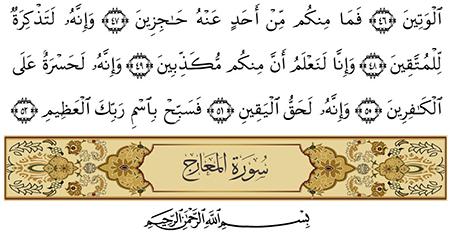 ٱلْوَتِينَ ﴿٤٦﴾ فَمَا مِنكُم مِّنْ أَحَدٍ عَنْهُ حَـٰجِزِينَ ﴿٤٧﴾ وَإِنَّهُۥ لَتَذْكِرَةٌ
لِّلْمُتَّقِينَ ﴿٤٨﴾ وَإِنَّا لَنَعْلَمُ أَنَّ مِنكُم مُّكَذِّبِينَ ﴿٤٩﴾ وَإِنَّهُۥ لَحَسْرَةٌ عَلَى
ٱلْكَـٰفِرِينَ ﴿٥٠﴾ وَإِنَّهُۥ لَحَقُّ ٱلْيَقِينِ ﴿٥١﴾ فَسَبِّحْ بِٱسْمِ رَبِّكَ ٱلْعَظِيمِ ﴿٥٢﴾
سُورَةُ المَعَارِجِ
بِسْمِ ٱللَّهِ ٱلرَّحْمَـٰنِ ٱلرَّحِيمِ